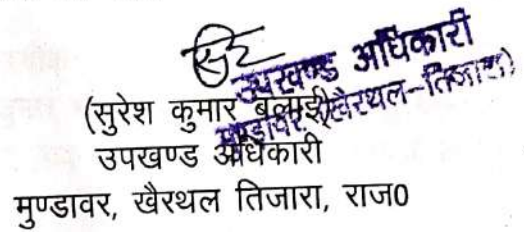 उपखण्ड अधिकारी
मुण्डावर (खैरथल-तिजारा)
(सुरेश कुमार बलाई)
उपखण्ड अधिकारी
मुण्डावर, खैरथल तिजारा, राज0